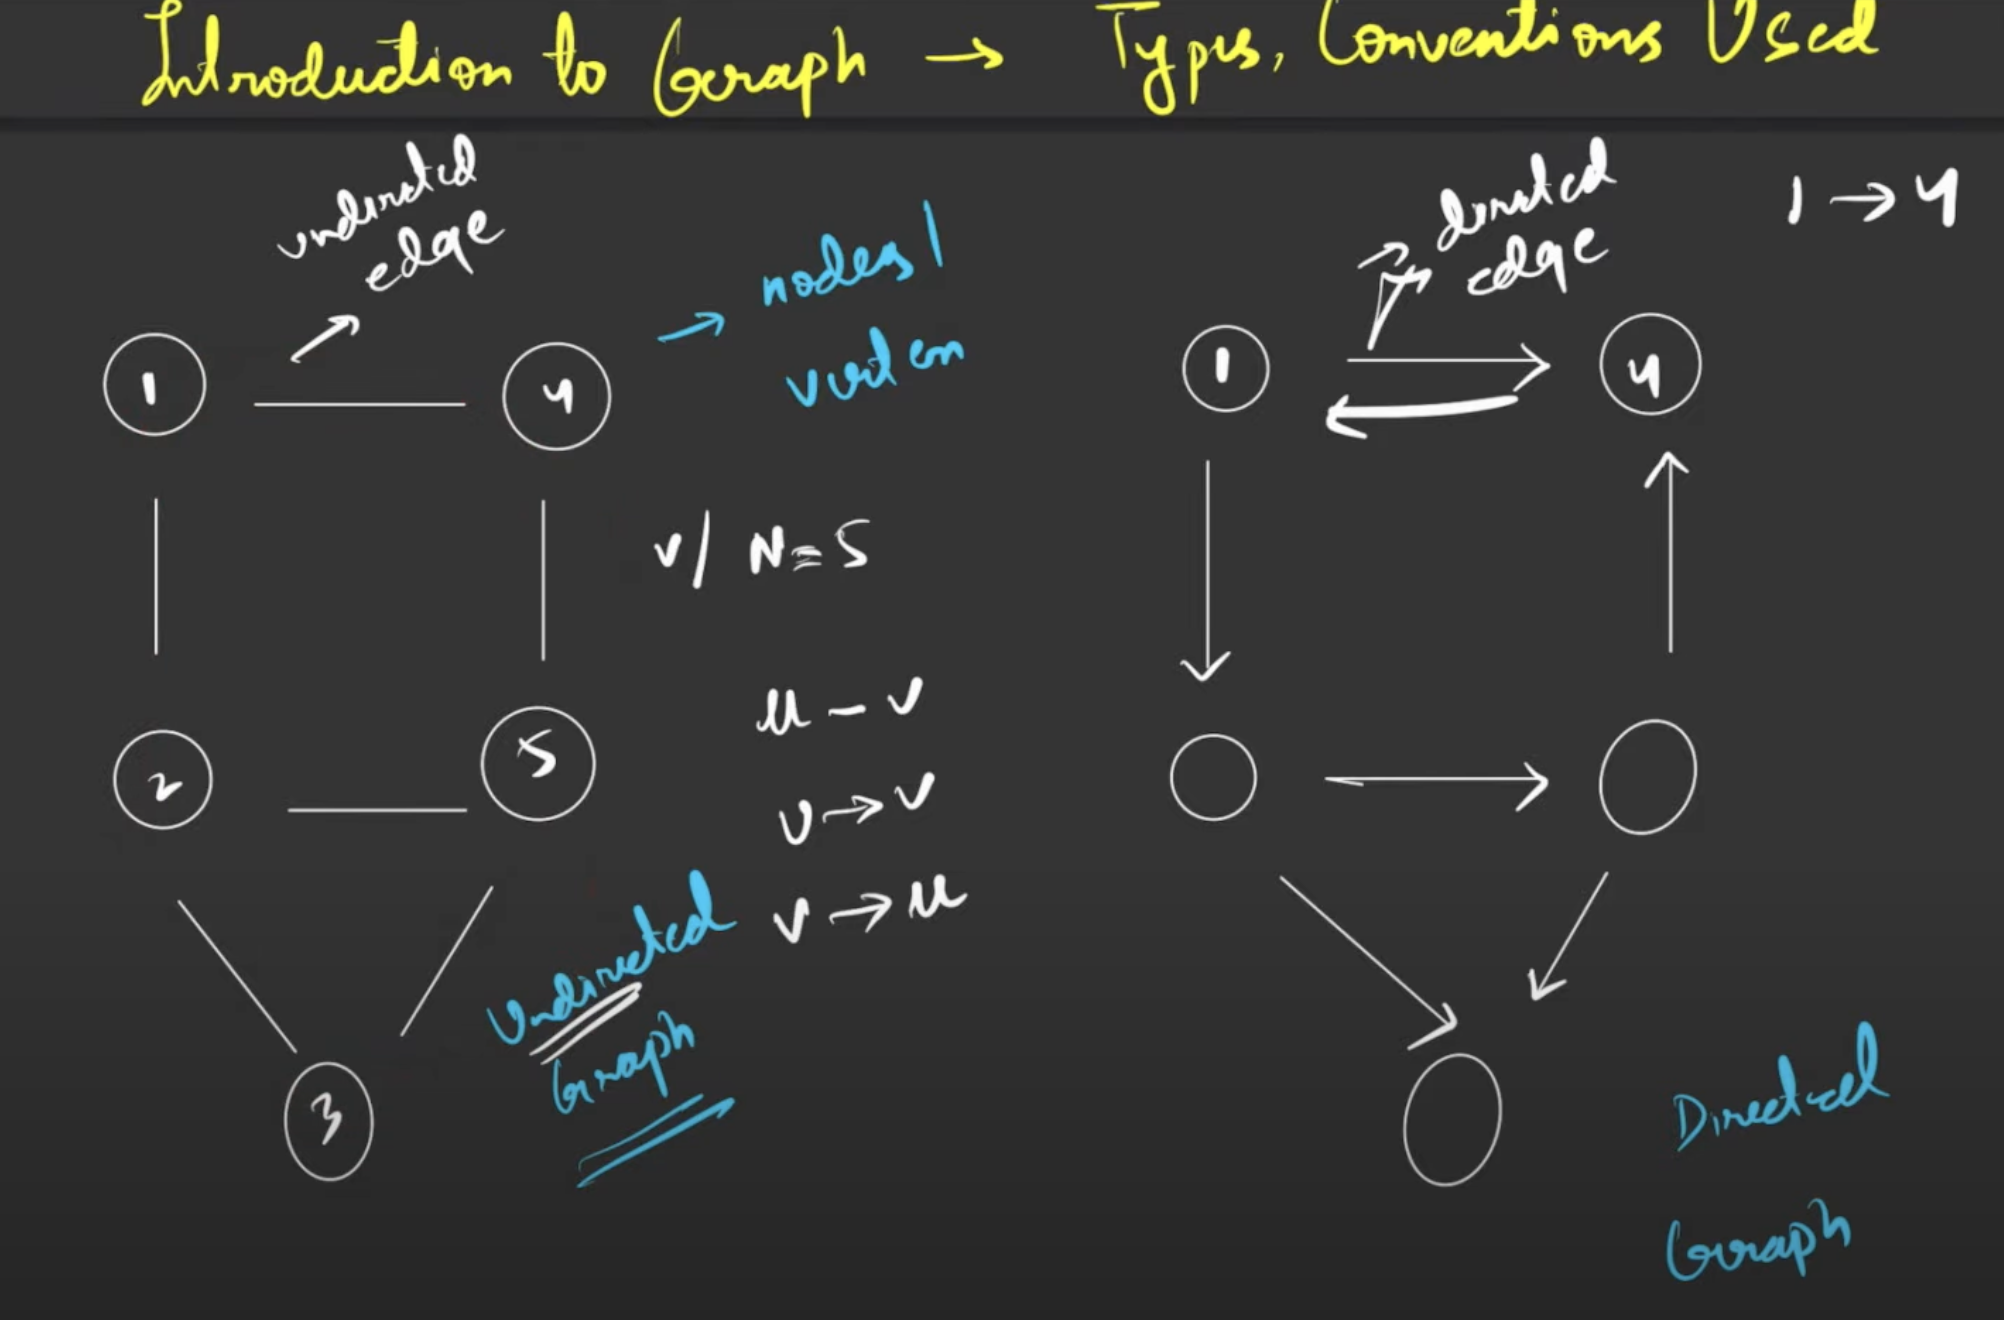 Introduction to Graph → Types, Conventions Used
undirected
edge
→ nodes/
vertex
1
4
V/ N = 5
2
5
u - v
u → v
v → u
3
Undirected
Graph
directed
edge
1 → 4
1
4
Directed
Graph